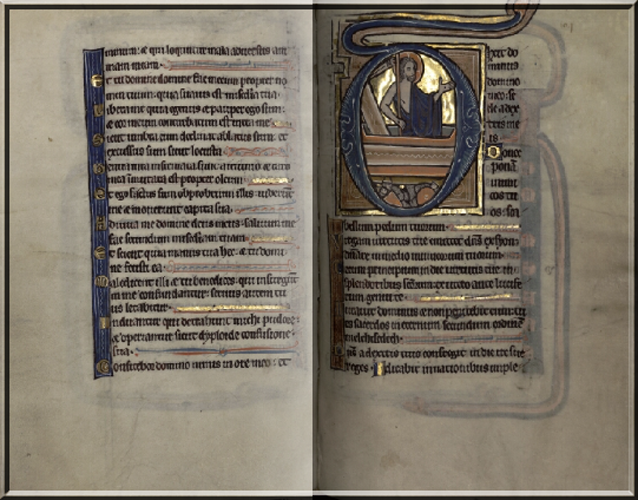 minum: et qui loquuntur mala adversus ani
mam meam.
Et tu domine domine fac mecum propter no
men tuum: quia suavis est misericordia tua.
Libera me quia egenus et pauper ego sum:
et cor meum conturbatum est intra me.
Sicut umbra cum declinat ablatus sum: et
excussus sum sicut locusta.
mea infirmata sunt a ieiunio: et caro
mea inmutata est propter oleum.
Et ego factus sum obprobrium illis: viderunt
me et moverunt capita sua.
Adiuva me domine deus meus: salvum me
fac secundum misericordiam tuam.
Et sciant quia manus tua hec: et tu domi
ne fecisti ea.
Maledicent illi et tu benedices: qui insurgunt
in me confundantur: servus autem tu
us letabitur.
Induantur qui detrahunt michi pudore:
et operiantur sicut dyploide confusione
sua.
Confitebor domino nimis in ore meo: et
Dixit do
minus
domino
meo: se
de a dex
tris me
is.
Donec
pona
inimi
cos tu
os: sca
bellum pedum tuorum.
Virgam virtutis tue emittet dominus ex syon:
dominare in medio inimicorum tuorum.
Tecum principium in die virtutis tue in
splendoribus sanctorum: ex utero ante lucife
rum genui te.
Iuravit dominus et non penitebit eum: tu
es sacerdos in eternum secundum ordinem
melchisedech.
Dominus a dextris tuis: confregit in die ire sue
reges. Iudicabit in nationibus imple